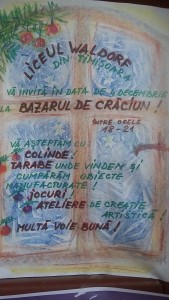 LICEUL WALDORF
DIN TIMIȘOARA
VĂ INVITĂ ÎN DATA DE 4 DECEMBRIE
LA BAZARUL DE CRĂCIUN!
ÎNTRE ORELE
18-21
VĂ AȘTEPTĂM CU:
COLINDE!
TARABE UNDE VINDEM ȘI
CUMPĂRĂM OBIECTE
MANUFACTURATE!
JOCURI!
ATELIERE DE CREAȚIE
ARTISTICĂ!
MULTĂ VOIE BUNĂ!